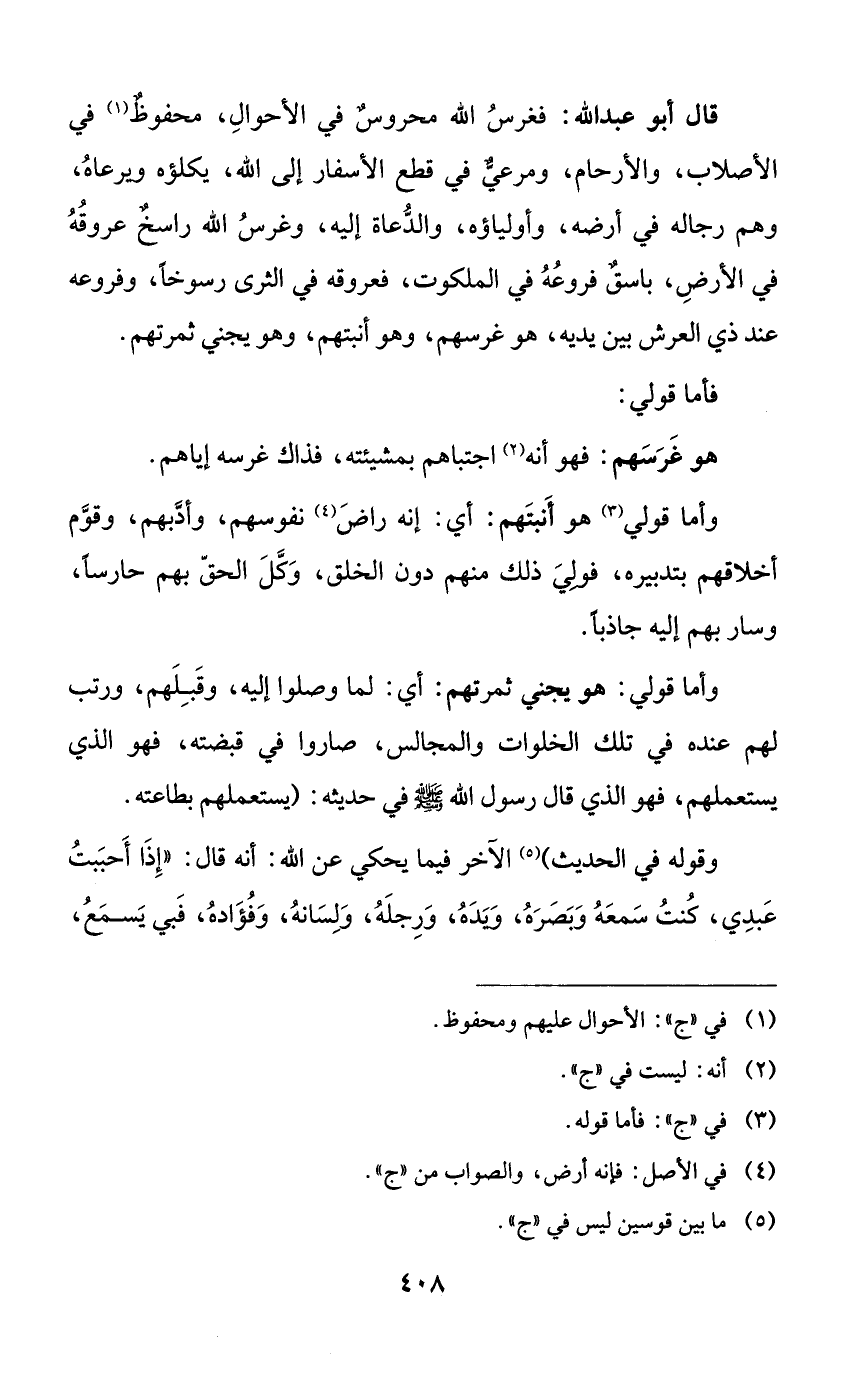 قال أبو عبدالله: فغرسُ الله محروسٌ في الأحوالِ، محفوظٌ(١) في
الأصلاب، والأرحام، ومرعيٌّ في قطع الأسفار إلى الله، يكلؤه ويرعاهُ،
وهم رجاله في أرضه، وأولياؤه، والدُّعاة إليه، وغرسُ الله راسخٌ عروقُهُ
في الأرضِ، باسقٌ فروعُهُ في الملكوت، فعروقه في الثرى رسوخاً، وفروعه
عند ذي العرش بين يديه، هو غرسهم، وهو أنبتهم، وهو يجني ثمرتهم.
فأما قولي:
هو غَرَسَهم: فهو أنه(٢) اجتباهم بمشيئته، فذاك غرسه إياهم.
وأما قولي(٣) هو أَنبتَهم: أي: إنه راضَ(٤) نفوسهم، وأدَّبهم، وقوَّم
أخلاقهم بتدبيره، فولِيَ ذلك منهم دون الخلق، وَكَّلَ الحقّ بهم حارساً،
وسار بهم إليه جاذباً.
وأما قولي: هو يجني ثمرتهم: أي: لما وصلوا إليه، وقَبِلَهم، ورتب
لهم عنده في تلك الخلوات والمجالس، صاروا في قبضته، فهو الذي
يستعملهم، فهو الذي قال رسول الله ﷺ في حديثه: (يستعملهم بطاعته.
وقوله في الحديث)(٥) الآخر فيما يحكي عن الله: أنه قال: «إِذَا أَحبَبتُ
عَبدِي، كُنتُ سَمعَهُ وَبَصَرَهُ، وَيَدَهُ، وَرِجلَهُ، وَلِسَانهُ، وَفُؤَادهُ، فَبي يَسمَعُ،
(١) في «ج»: الأحوال عليهم ومحفوظ.
(٢) أنه: ليست في «ج».
(٣) في «ج»: فأما قوله.
(٤) في الأصل: فإنه أرض، والصواب من «ج».
(٥) ما بين قوسين ليس في «ج».
٤٠٨